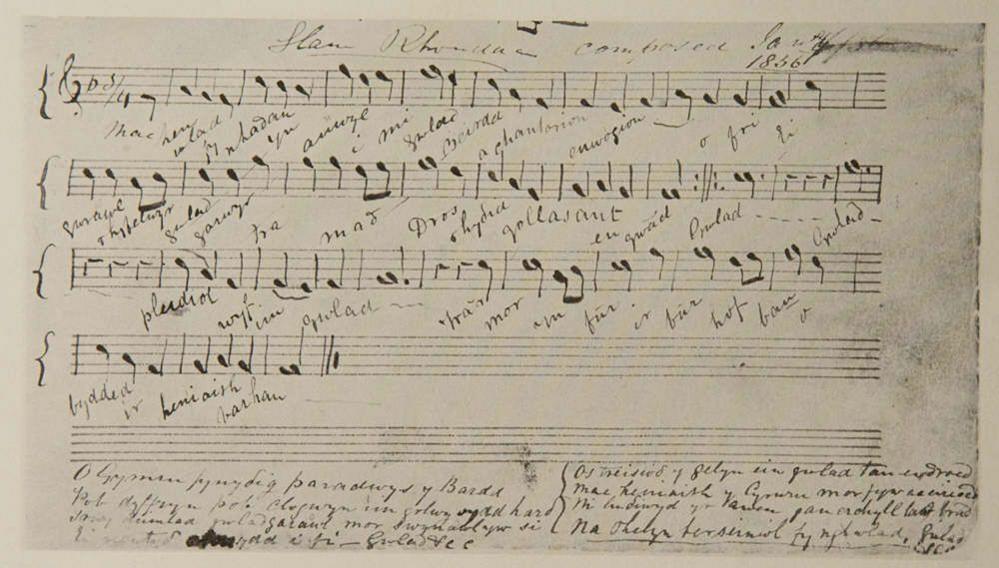 Glan Rhondda composed Jany
1856
Mae hen wlad fy nhadau yn anwyl i mi gwlad Beirdd a chantorion enwogion o fri
gwrawl rhyfelwyr gwlad garwyr tra mad Dros rhydid gollasant eu gwaed Gwlad Gwlad
pleidiol wyf im gwlad tra mor yn fur ir bur hof bau o
bydded ir heniaith barhau
O Gymru fynydig paradwys y Bardd
Pob dyffryn pob clogwyn im golwg sydd hardd
gwladgarawl mor swynawl yw si
i fi Gwlad &c
Os treisiod y gelyn ein gwlad tan ei droed
Mae heniaith y Cymru mor fyw ac erioed
Ni ludiwyd yr awen gan erchyll law brad
Na thelyn berseiniol fy ngwlad, Gwlad
&c